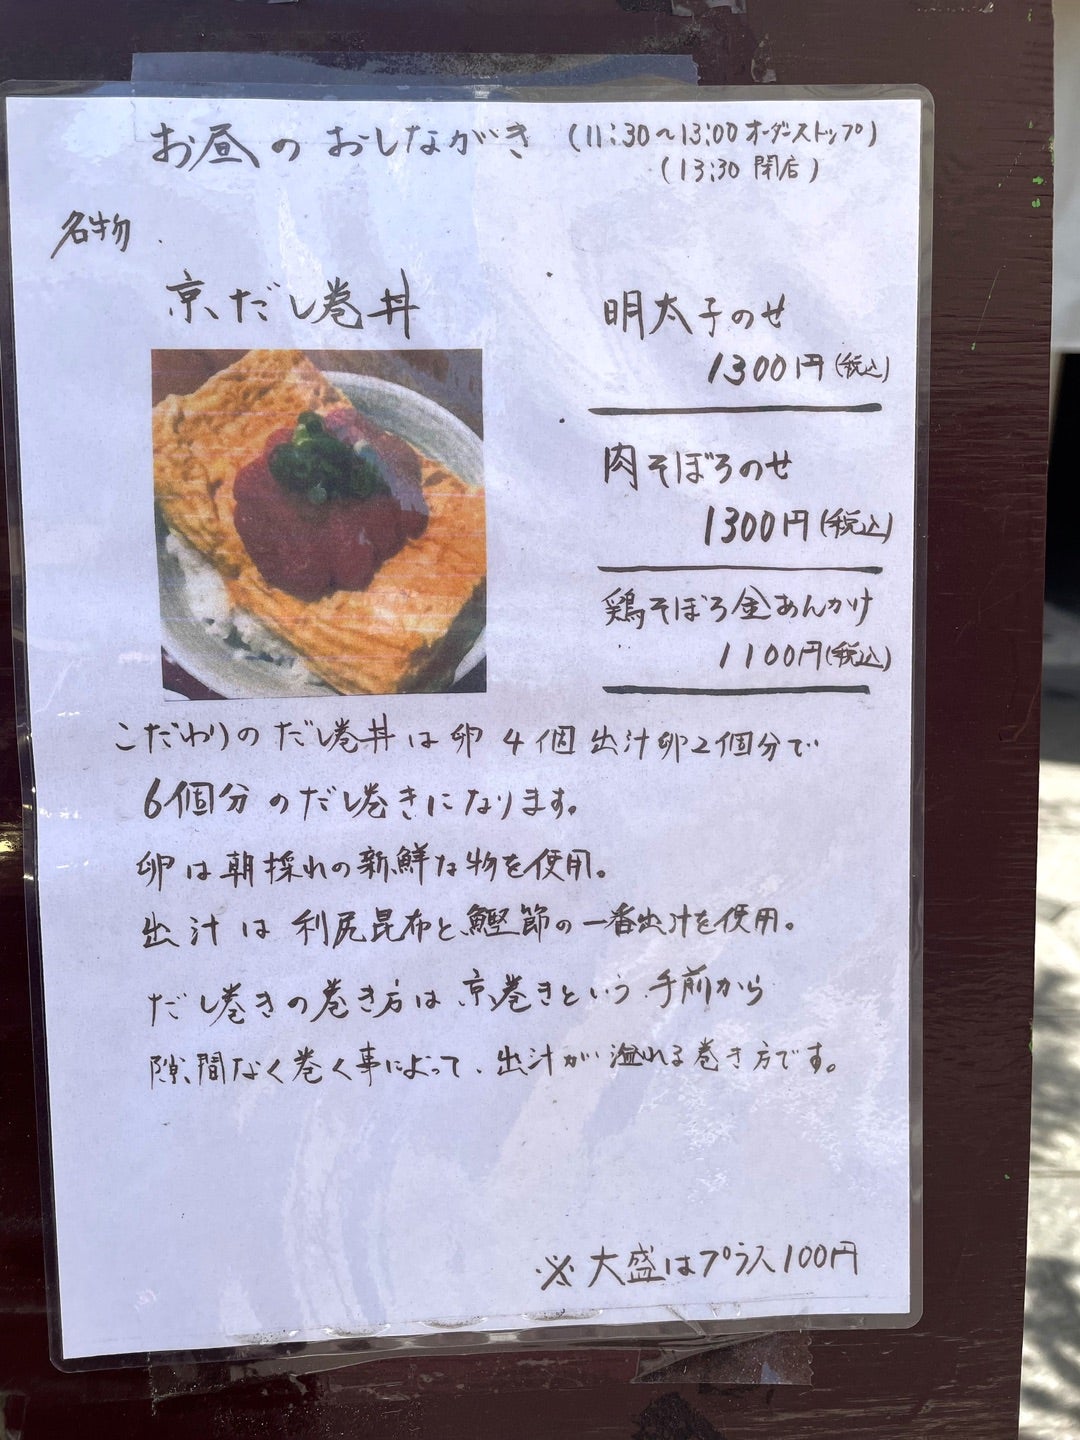 お昼のおしながき (11:30〜13:00オーダーストップ)
(13:30 閉店)
名物
京だし巻丼
明太子のせ
1300円(税込)
肉そぼろのせ
1300円(税込)
鶏そぼろ金あんかけ
1100円(税込)
こだわりのだし巻丼は卵4個出汁卵2個分で
6個分のだし巻きになります。
卵は朝採れの新鮮な物を使用。
出汁は利尻昆布と鰹節の一番出汁を使用。
だし巻きの巻き方は京巻きという手前から
隙間なく巻く事によって、出汁が溢れる巻き方です。
※大盛はプラス100円